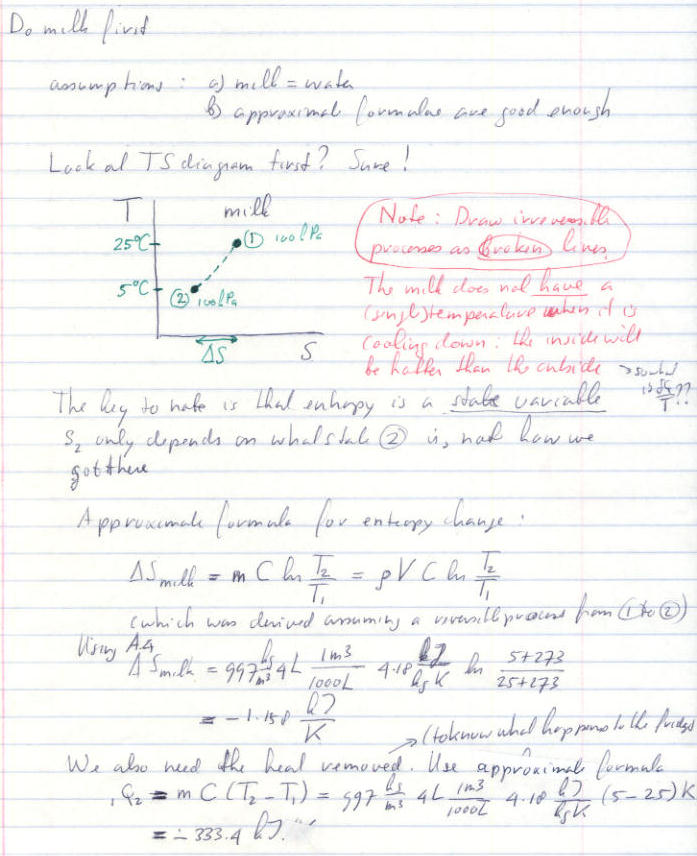 Do milk first
assumptions : a) milk = water
b) approximate formulae are good enough
Look at TS diagram first? Sure!
T milk
25°C ① 100 kPa
5°C ② 100 kPa
ΔS S
Note: Draw irreversible
processes as broken lines.
The milk does not have a
(single) temperature when it is
cooling down: the inside will
be hotter than the outside → so what
is δQ/T??
The key to note is that entropy is a state variable
S₂ only depends on what state ② is, not how we
got there
Approximate formula for entropy change:
ΔS milk = m C ln T₂/T₁ = ρ V C ln T₂/T₁
(which was derived assuming a reversible process from ① to ②)
Using A.4
ΔS milk = 997 kg/m3 4L 1m3/1000L 4.18 kJ/kg K ln 5+273/25+273
= -1.158 kJ/K
→ (to know what happens to the fridge)
We also need the heat removed. Use approximate formula
₁Q₂ = m C (T₂ - T₁) = 997 kg/m3 4L 1m3/1000L 4.18 kJ/kg K (5-25) K
= -333.4 kJ.